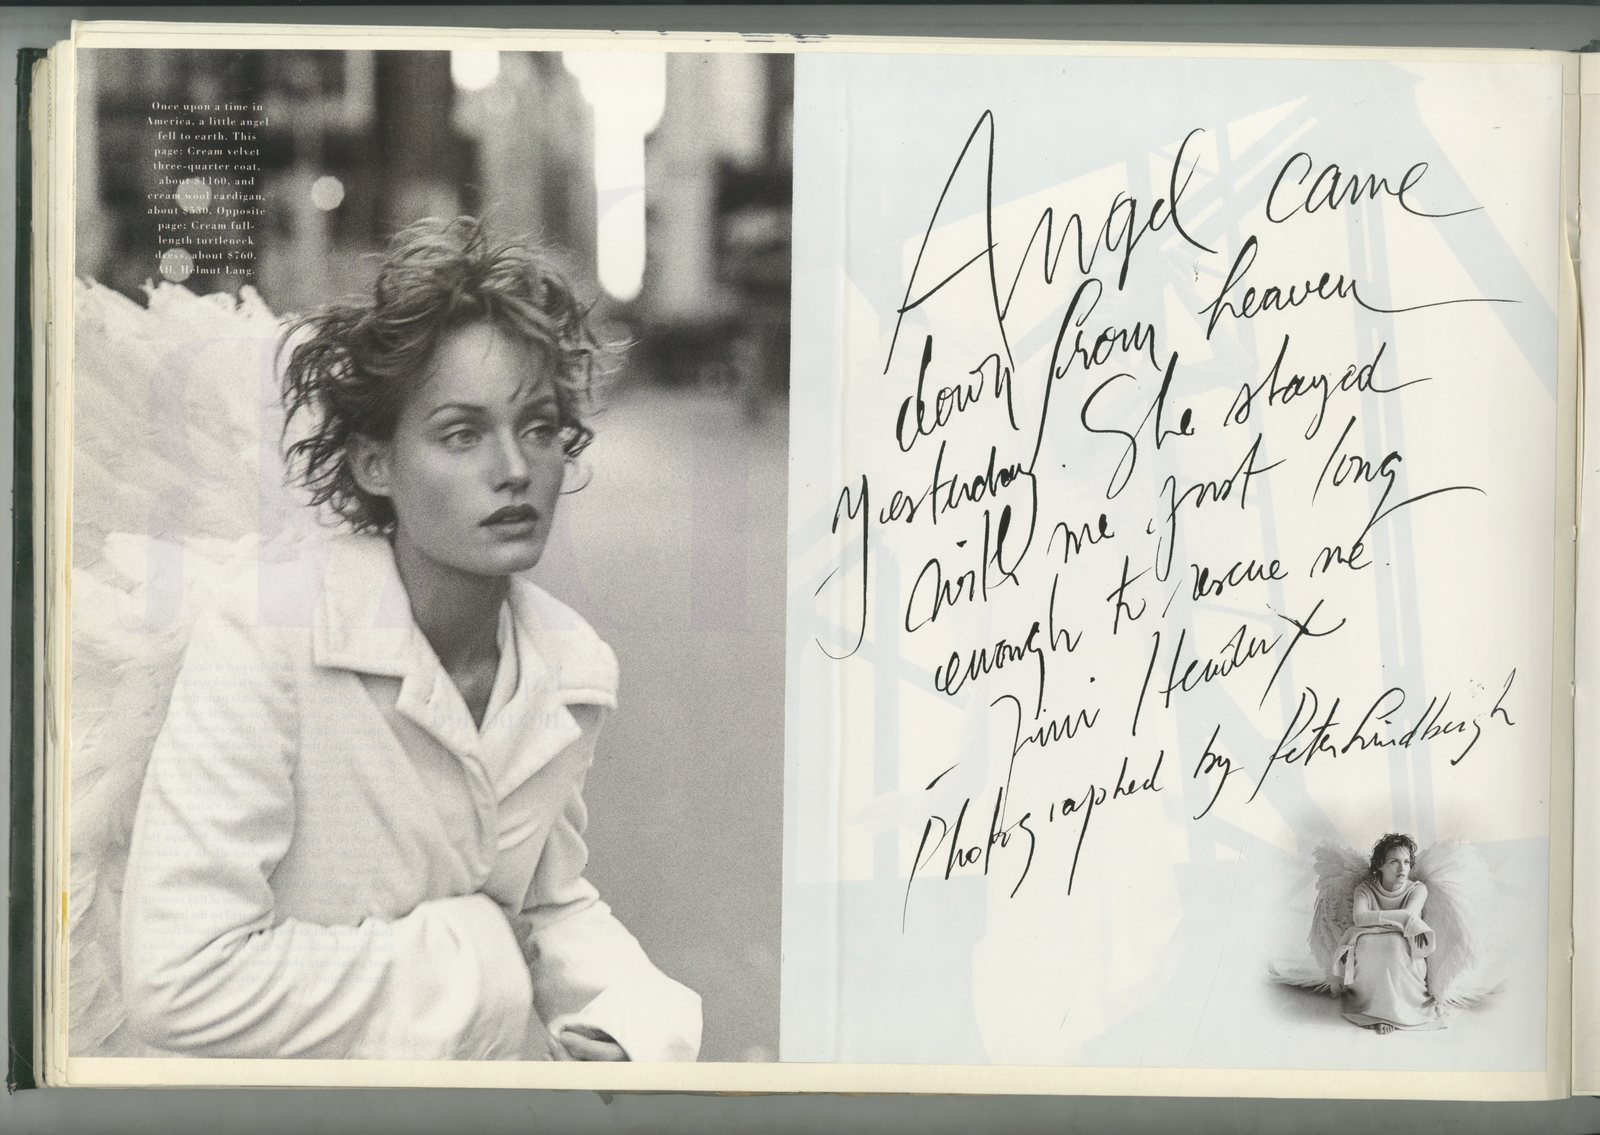 Once upon a time in
America, a little angel
fell to earth. This
page: Cream velvet
three-quarter coat,
about $1160, and
cream wool cardigan,
about $530. Opposite
page: Cream full-
length turtleneck
dress, about $760.
All, Helmut Lang.
Angel came
down from heaven
yesterday. She stayed
with me just long
enough to rescue me.
– Jimi Hendrix
Photographed by Peter Lindbergh